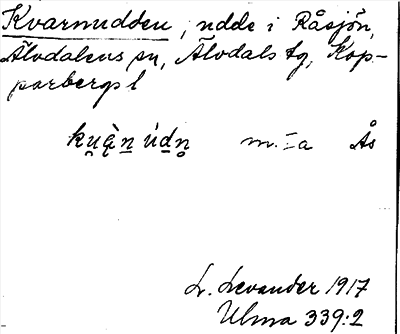 Kvarnudden, udde i Råsjön,
Älvdalens sn, Älvdals tg, Kop-
parbergs l
ku̯ą̀n̠ úd̠n̥ m. ÷a Ås
L. Levander 1917
Ulma 339:2